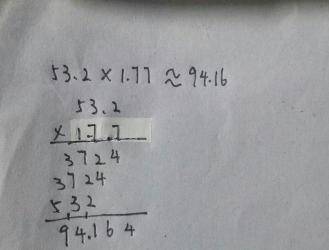 53.2 × 1.77 ≈ 94.16
53.2
× 1.7.7
3724
3724
532
94.164